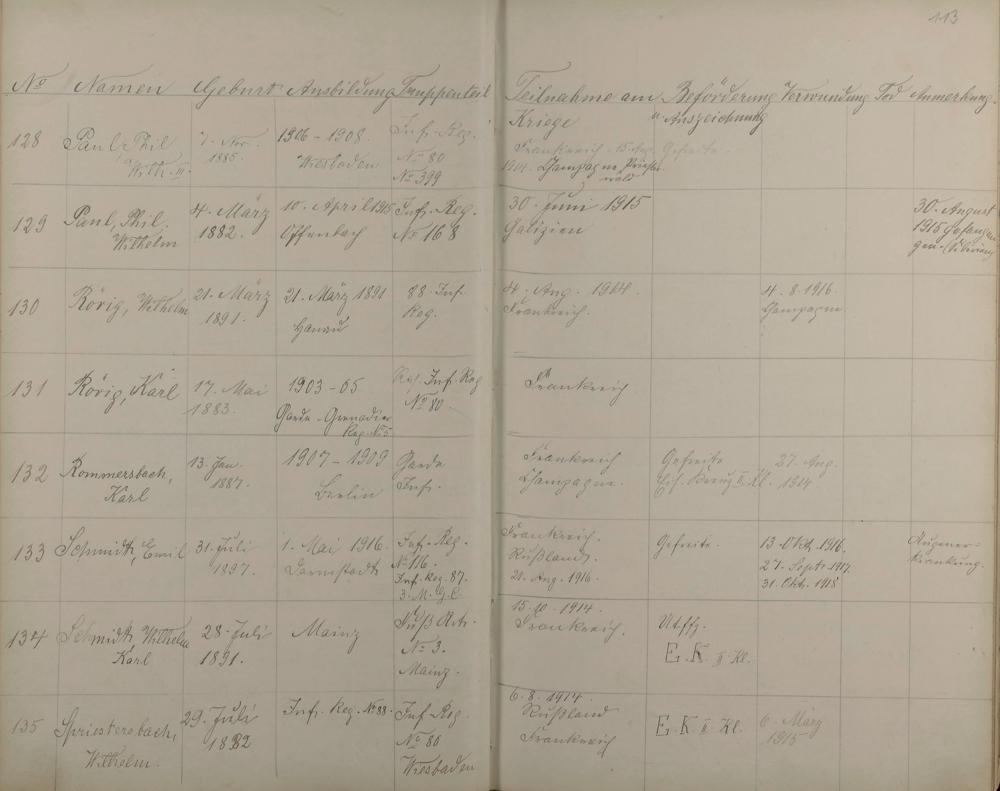 113
No Namen Geburt Ausbildung Truppenteil Teilnahme am Kriege Beförderung u. Auszeichnung Verwundung Tod Anmerkung.
128 Paul, Phil. Wilh. II. 7. Nov. 1885. 1906 - 1908. Wiesbaden Inf.-Reg. No 80 No 399 Frankreich. 15. Aug. 1914. Champagne, Priesterwald Gefreite.
129 Paul, Phil. Wilhelm 4. März 1882. 10. April 1915 Offenbach Inf.-Reg. No 168 30. Juni 1915 Galizien 30. August 1915 Gefangen
130 Rörig, Wilhelm 21. März 1891. 21. März 1891 Hanau 88. Inf. Reg. 4. Aug. 1914. Frankreich. 4. 8. 1916. Champagne.
131 Rörig, Karl 17. Mai 1883. 1903-05 Garde-Grenadier Reg. No 5 Res. Inf. Reg. No 80. Frankreich
132 Rommersbach, Karl 13. Jan. 1887. 1907-1909 Berlin Garde Inf. Frankreich Champagne. Gefreite Eis. Kreuz II. Kl. 27. Aug. 1914.
133 Schmidt, Emil 31. Juli 1897. 1. Mai 1916. Darmstadt Inf.-Reg. No 116. Inf. Reg. 87. 3. M. G. C. Frankreich. Rußland. 21. Aug. 1916. Gefreite. 13. Okt. 1916. 27. Sept. 1917. 31. Okt. 1918 Augenerkrankung.
134 Schmidt, Wilhelm Karl 28. Juli 1891. Mainz Fuß Art. No 3. Mainz. 15. 10. 1914. Frankreich. Utffz. E. K. II. Kl.
135 Spriestersbach, Wilhelm. 29. Juli 1882 Inf. Reg. No 88. Inf-Reg. No 80 Wiesbaden 6. 8. 1914. Rußland Frankreich E. K. II. Kl. 6. März 1915